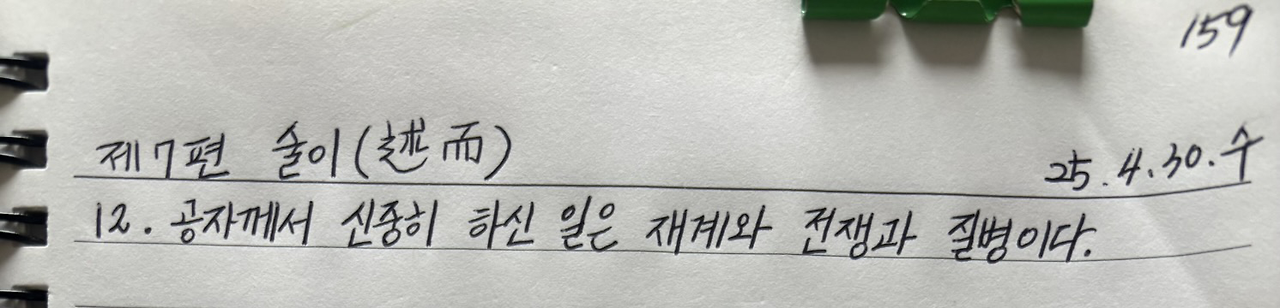 159
제7편 술이(述而)
25.4.30.수
12. 공자께서 신중히 하신 일은 재계와 전쟁과 질병이다.